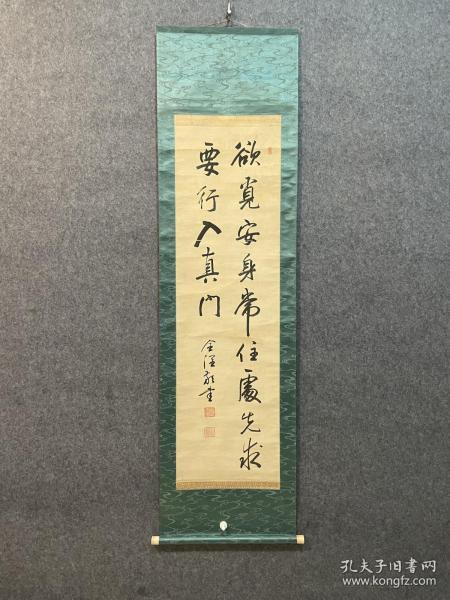 欲覓安身常住處先求
要行入真門
孔夫子旧书网
www.kongfz.com